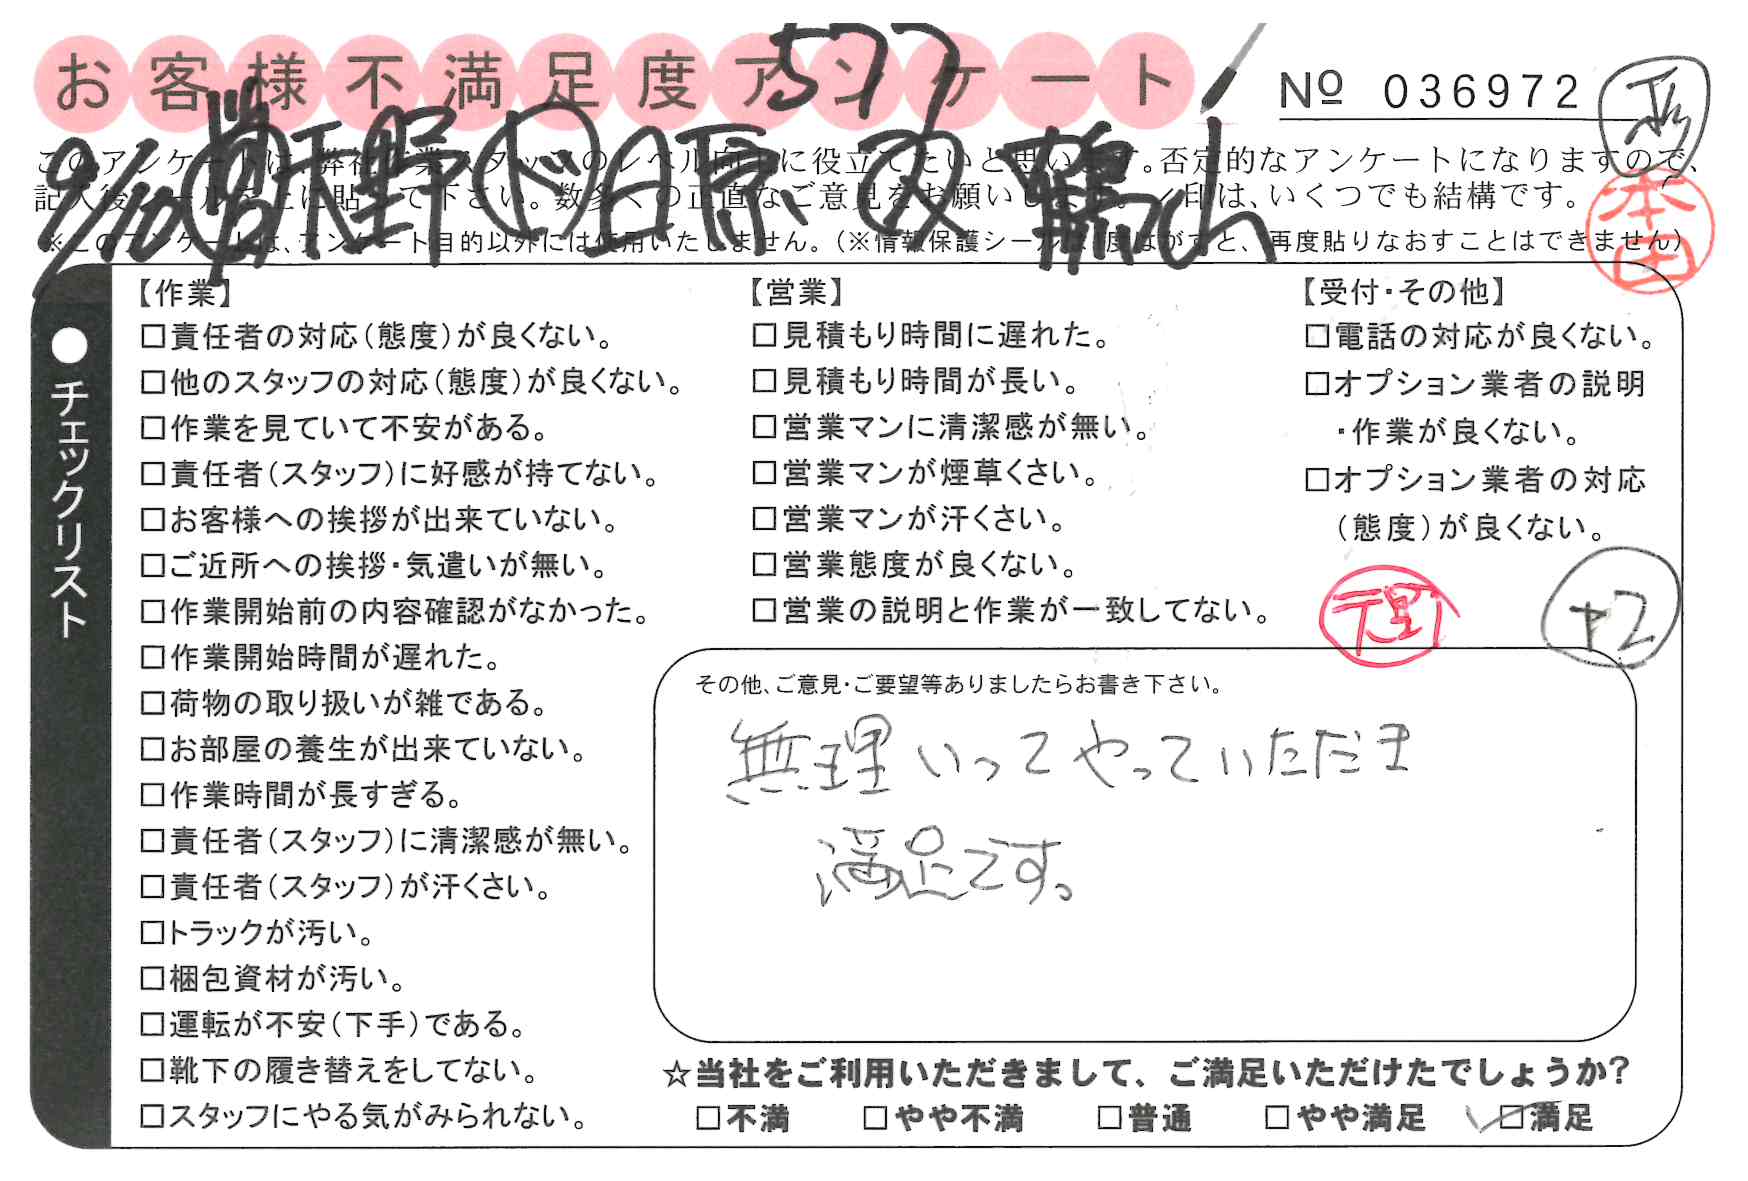 お客様不満足度アンケート
577
№ 036972
このアンケートは、弊社作業スタッフのレベル向上に役立てたいと思います。否定的なアンケートになりますので、
記入後シールを上に貼って下さい。数多くの正直なご意見をお願いします。✓印は、いくつでも結構です。
※このアンケートは、アンケート目的以外には使用いたしません。(※情報保護シールは1度はがすと、再度貼りなおすことはできません)
9/10 天野 ド 日原
本田
●チェックリスト
【作業】
□責任者の対応(態度)が良くない。
□他のスタッフの対応(態度)が良くない。
□作業を見ていて不安がある。
□責任者(スタッフ)に好感が持てない。
□お客様への挨拶が出来ていない。
□ご近所への挨拶・気遣いが無い。
□作業開始前の内容確認がなかった。
□作業開始時間が遅れた。
□荷物の取り扱いが雑である。
□お部屋の養生が出来ていない。
□作業時間が長すぎる。
□責任者(スタッフ)に清潔感が無い。
□責任者(スタッフ)が汗くさい。
□トラックが汚い。
□梱包資材が汚い。
□運転が不安(下手)である。
□靴下の履き替えをしてない。
□スタッフにやる気がみられない。
【営業】
□見積もり時間に遅れた。
□見積もり時間が長い。
□営業マンに清潔感が無い。
□営業マンが煙草くさい。
□営業マンが汗くさい。
□営業態度が良くない。
□営業の説明と作業が一致してない。
【受付・その他】
□電話の対応が良くない。
□オプション業者の説明
・作業が良くない。
□オプション業者の対応
(態度)が良くない。
+2
その他、ご意見・ご要望等ありましたらお書き下さい。
無理いってやっていただき
満足です。
☆当社をご利用いただきまして、ご満足いただけたでしょうか?
□不満 □やや不満 □普通 □やや満足 ✓□満足